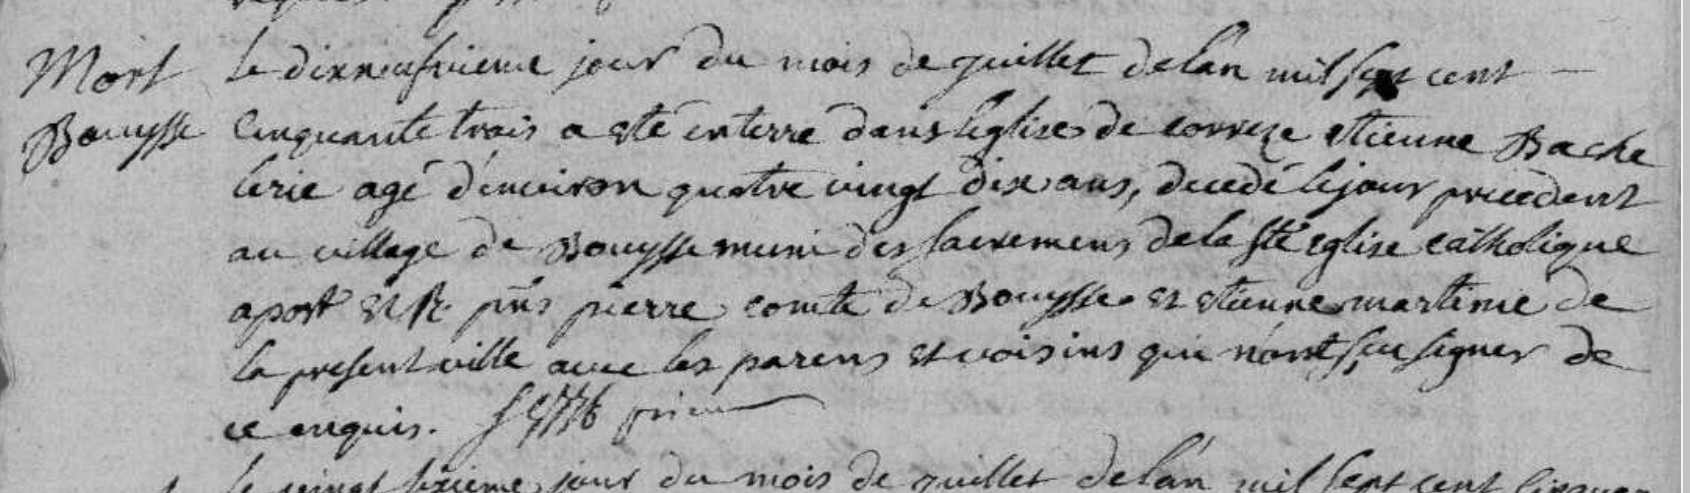 Mort
Bouysse
le dixneufvieme jour du mois de juillet de lan mil sept cent
cinquante trois a esté enterré dans leglise de correze etienne Bache
lerie agé d'environ quatre vingt dix ans, decedé le jour precedent
au village de Bouysse muni des sacremens de la ste eglise catholique
apost et R. pns pierre comte de Bouysse et etienne martinie de
la present ville avec les parens et voisins qui n'ont sçu signer de
ce enquis.
le vingt sixieme jour du mois de juillet de lan mil sept cent